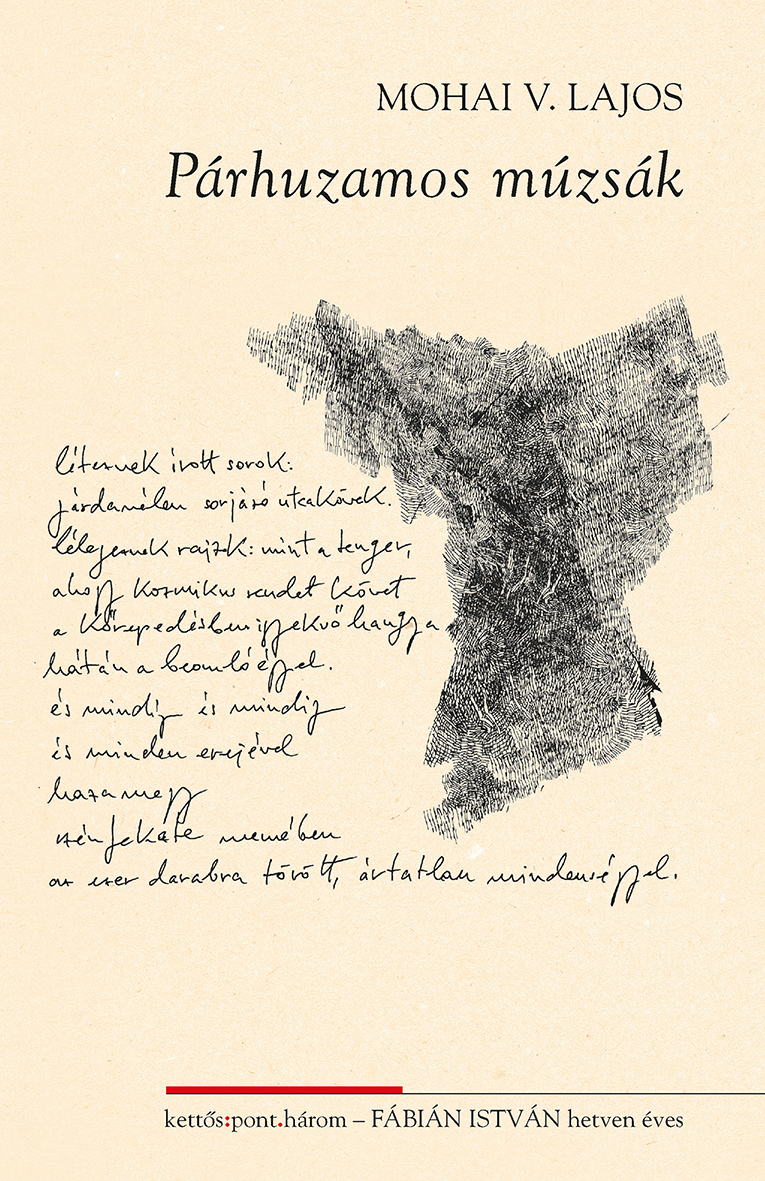 MOHAI V. LAJOS
Párhuzamos múzsák
írott sorok:
járdamélen sorjázó utcakövek.
rajzok: mint a tenger,
ahogy kozmikus rendet követ
a kőrepedésben hangja
hátán a beomló éjjel.
és mindig és mindig
és minden erejével
hazamegy
szénfekete
az ezer darabra törött, ártatlan mindenséggel.
kettős:pont.három – FÁBIÁN ISTVÁN hetven éves